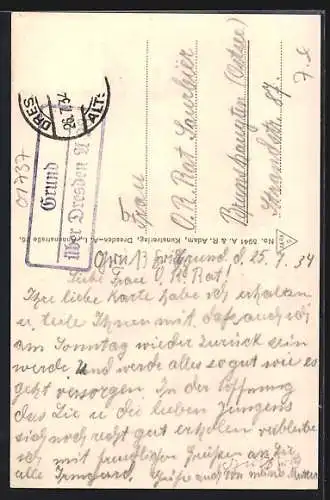 DRES ALT
26.7.34
Grund
über Dresden A
01737
Frau
O. R. Rat
Brunshaupten (Ostsee)
Strandstr. 87.
No. 5941 A. & R. Adam, Kunstverlag, Dresden-A. 1,
Grund d. 25.7.34
Liebe Frau O. R. Rat!
Ihre liebe Karte habe ich erhalten
u. teile Ihnen mit, dass auch ich
am Sonntag wieder zurück sein
werde u. werde alles so gut wie es
geht versorgen. In der Hoffnung
das Sie u. die lieben Jungens
sich noch recht gut erholen verbleibe
ich mit freundlichen Grüßen an Sie
alle Irmgard. Grüße auch von meine Mutter